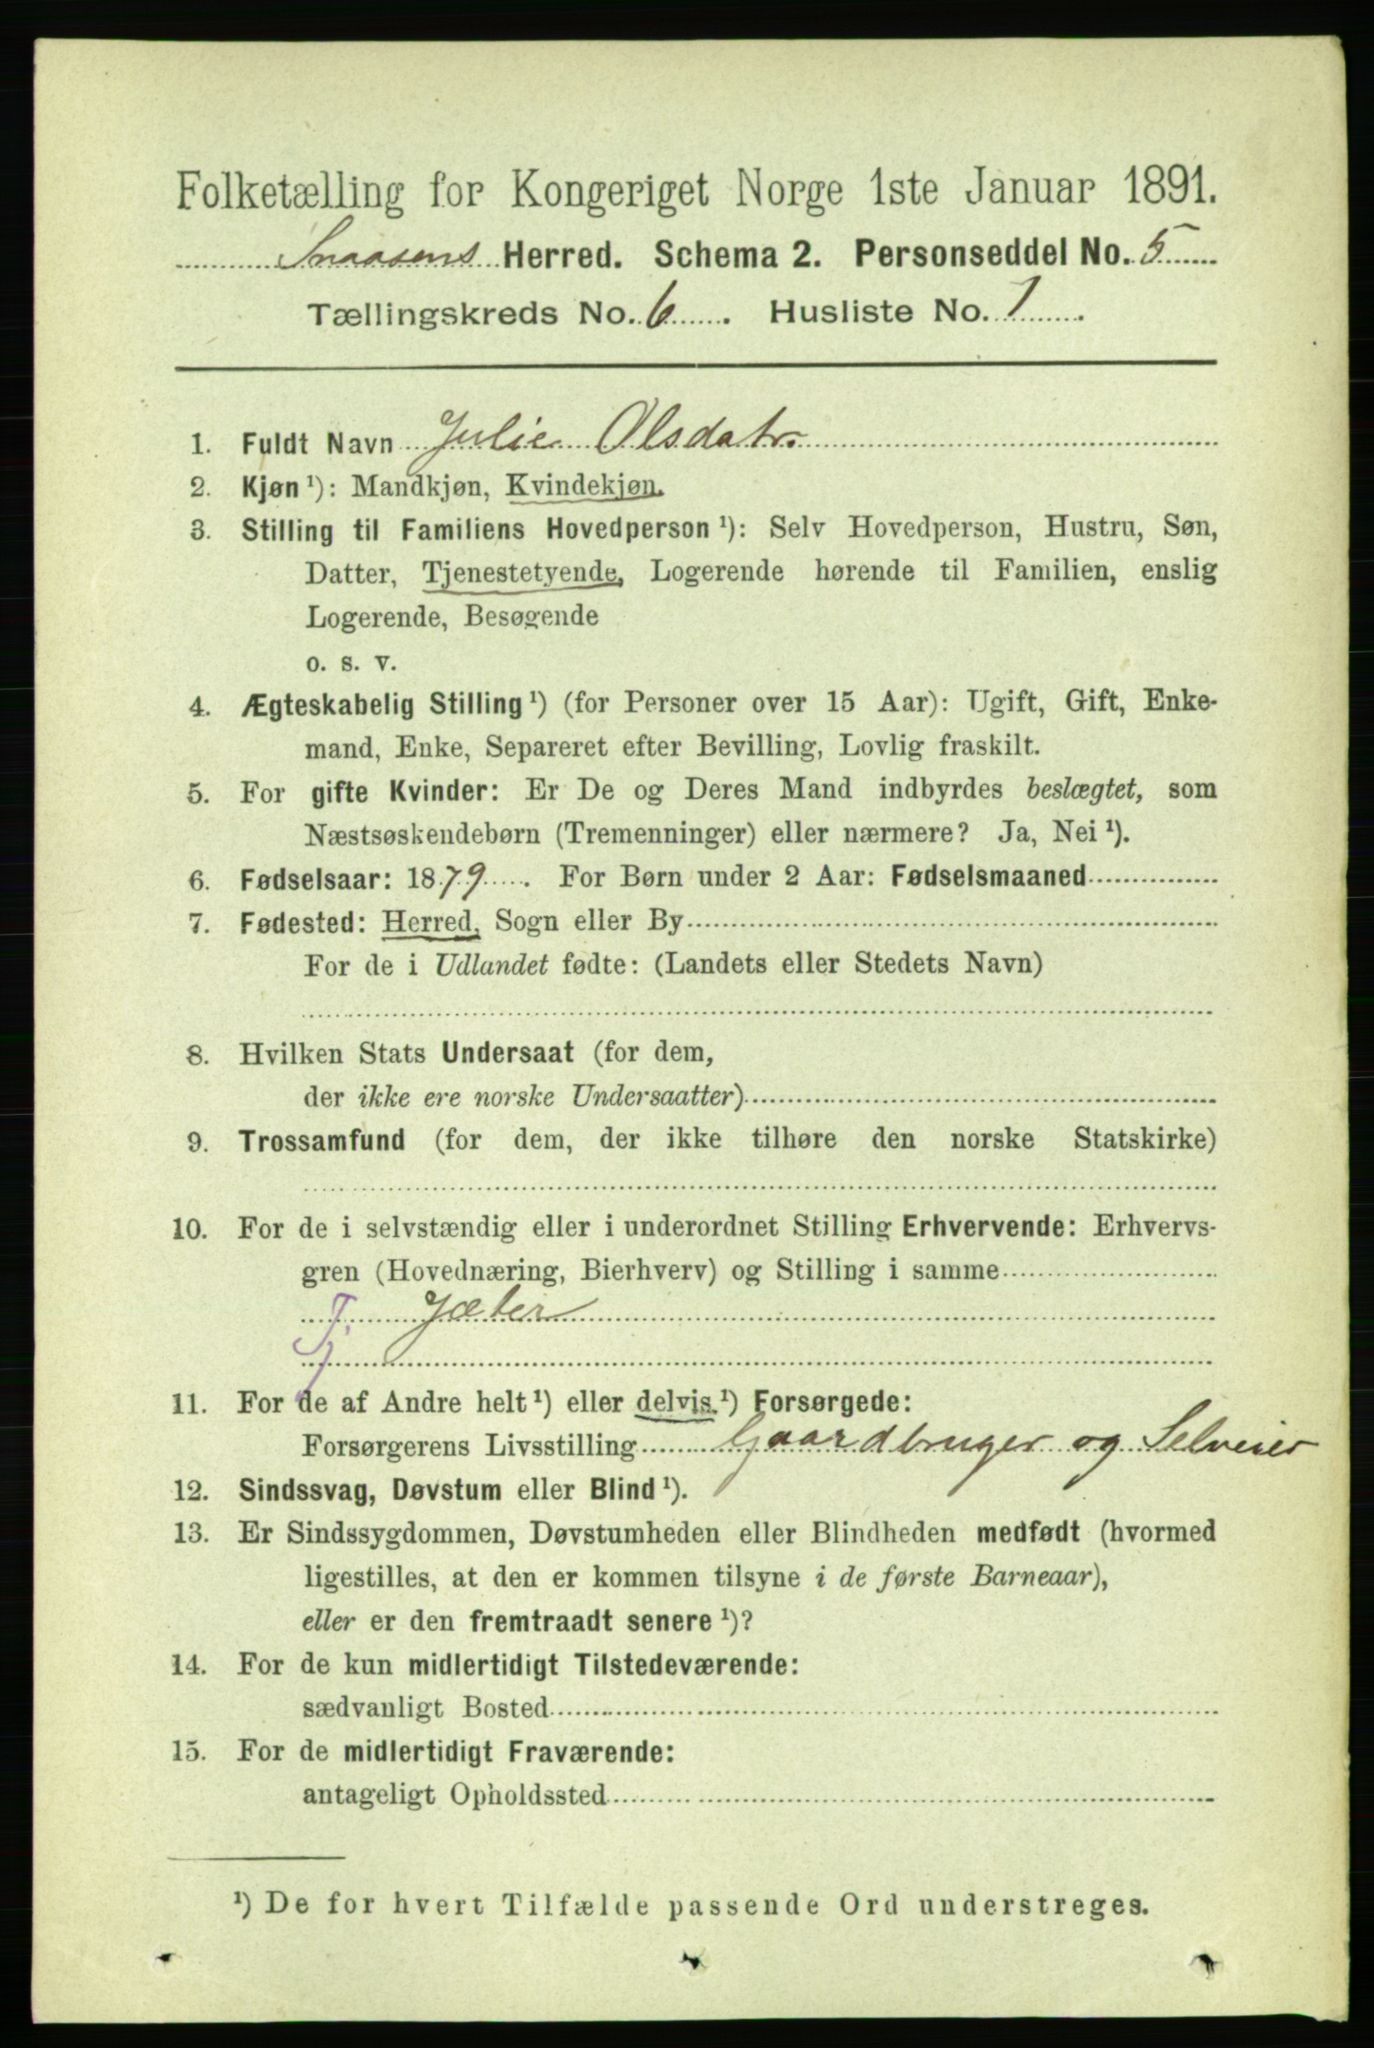 Folketælling for Kongeriget Norge 1ste Januar 1891.
Snaasens Herred. Schema 2. Personseddel No. 5
Tællingskreds No. 6. Husliste No. 1.
1. Fuldt Navn Julie Olsdatr.
2. Kjøn ¹): Mandkjøn, Kvindekjøn.
3. Stilling til Familiens Hovedperson ¹): Selv Hovedperson, Hustru, Søn,
Datter, Tjenestetyende, Logerende hørende til Familien, enslig
Logerende, Besøgende
o. s. v.
4. Ægteskabelig Stilling ¹) (for Personer over 15 Aar): Ugift, Gift, Enke-
mand, Enke, Separeret efter Bevilling, Lovlig fraskilt.
5. For gifte Kvinder: Er De og Deres Mand indbyrdes beslægtet, som
Næstsøskendebørn (Tremenninger) eller nærmere? Ja, Nei ¹).
6. Fødselsaar: 1879. For Børn under 2 Aar: Fødselsmaaned
7. Fødested: Herred, Sogn eller By
For de i Udlandet fødte: (Landets eller Stedets Navn)
8. Hvilken Stats Undersaat (for dem,
der ikke ere norske Undersaatter)
9. Trossamfund (for dem, der ikke tilhøre den norske Statskirke)
10. For de i selvstændig eller i underordnet Stilling Erhvervende: Erhvervs-
gren (Hovednæring, Bierhverv) og Stilling i samme
Tj. Jæter
11. For de af Andre helt ¹) eller delvis ¹) Forsørgede:
Forsørgerens Livsstilling Gaardbruger og Selveier
12. Sindssvag, Døvstum eller Blind ¹).
13. Er Sindssygdommen, Døvstumheden eller Blindheden medfødt (hvormed
ligestilles, at den er kommen tilsyne i de første Barneaar),
eller er den fremtraadt senere ¹)?
14. For de kun midlertidigt Tilstedeværende:
sædvanligt Bosted
15. For de midlertidigt Fraværende:
antageligt Opholdssted
¹) De for hvert Tilfælde passende Ord understreges.